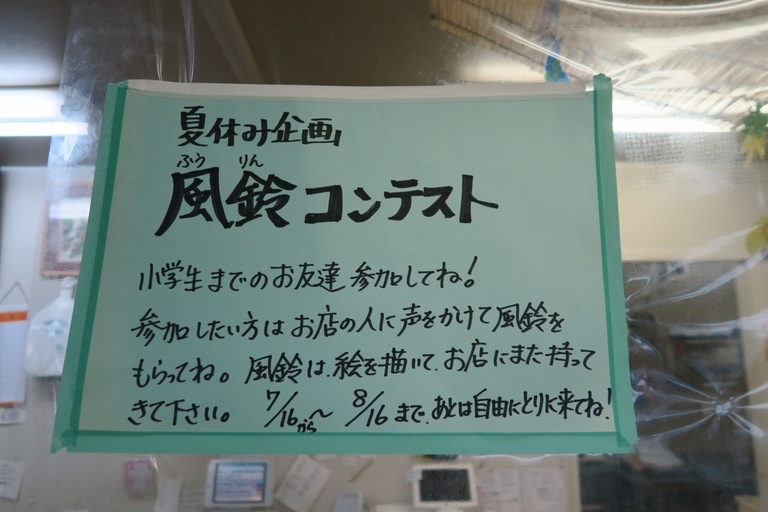 夏休み企画
ふう りん
風鈴コンテスト
小学生までのお友達 参加してね!
参加したい方は お店の人に声をかけて風鈴を
もらってね。風鈴は、絵を描いて、お店にまた持って
きて下さい。 7/16から〜 8/16 まで、あとは自由にとりに来てね!